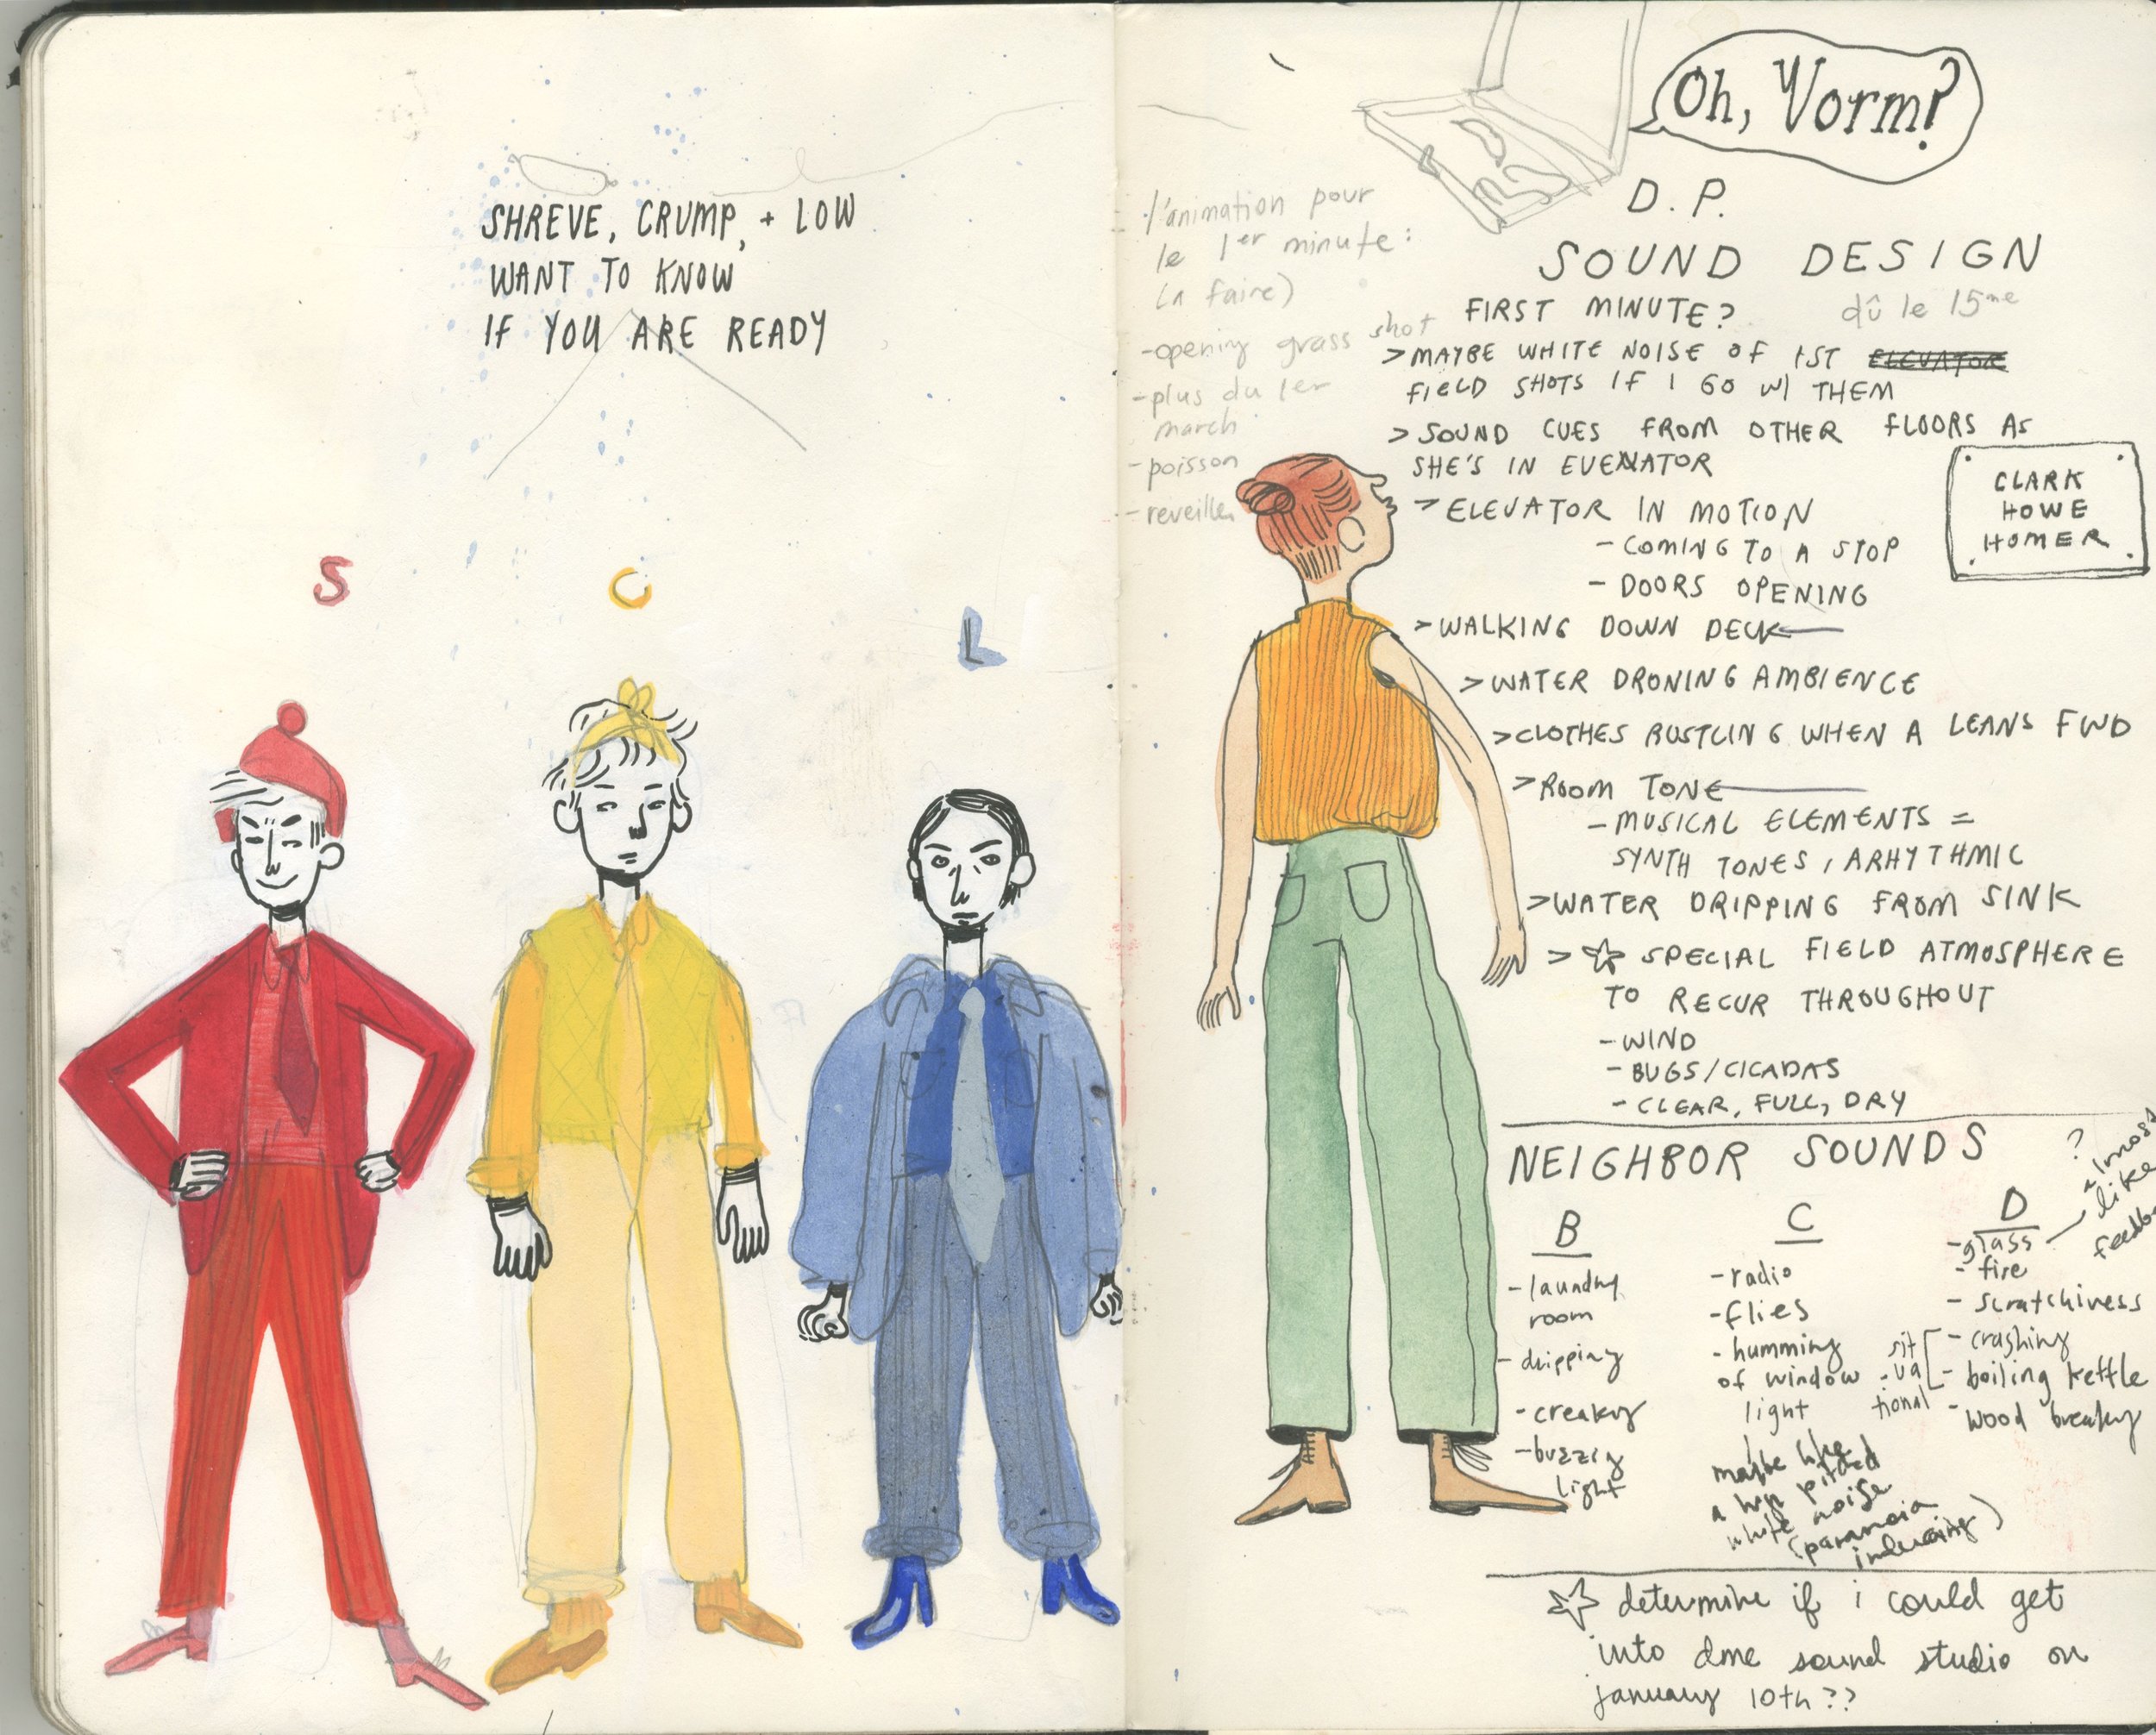 SHREVE, CRUMP, + LOW
WANT TO KNOW
IF YOU ARE READY
S
C
L
Oh, Vorm?
D.P.
SOUND DESIGN
FIRST MINUTE?
dû le 15me
l'animation pour
le 1er minute:
(à faire)
-opening grass shot
-plus du 1er
march
-poisson
-reveiller
>MAYBE WHITE NOISE OF 1ST ELEVATOR
FIELD SHOTS IF I GO W/ THEM
>SOUND CUES FROM OTHER FLOORS AS
SHE'S IN
>ELEVATOR IN MOTION
-COMING TO A STOP
-DOORS OPENING
CLARK
HOWE
HOMER
>WALKING DOWN DECK
>WATER DRONING AMBIENCE
>CLOTHES RUSTLING WHEN A LEANS FWD
>ROOM TONE
-MUSICAL ELEMENTS =
SYNTH TONES, ARHYTHMIC
>WATER DRIPPING FROM SINK
>☆ SPECIAL FIELD ATMOSPHERE
TO RECUR THROUGHOUT
-WIND
-BUGS/CICADAS
-CLEAR, FULL, DRY
NEIGHBOR SOUNDS
B
-laundry
room
-dripping
-creaky
-buzzing
light
C
-radio
-flies
-humming
of window
light
maybe like
a high pitched
white noise
(paranoia
inducing)
D
-glass
-fire
-scratchiness
-crashing
-boiling kettle
-wood breaking
?
almost
like
sit
-ua
tional
☆ determine if i could get
into dme sound studio on
january 10th??